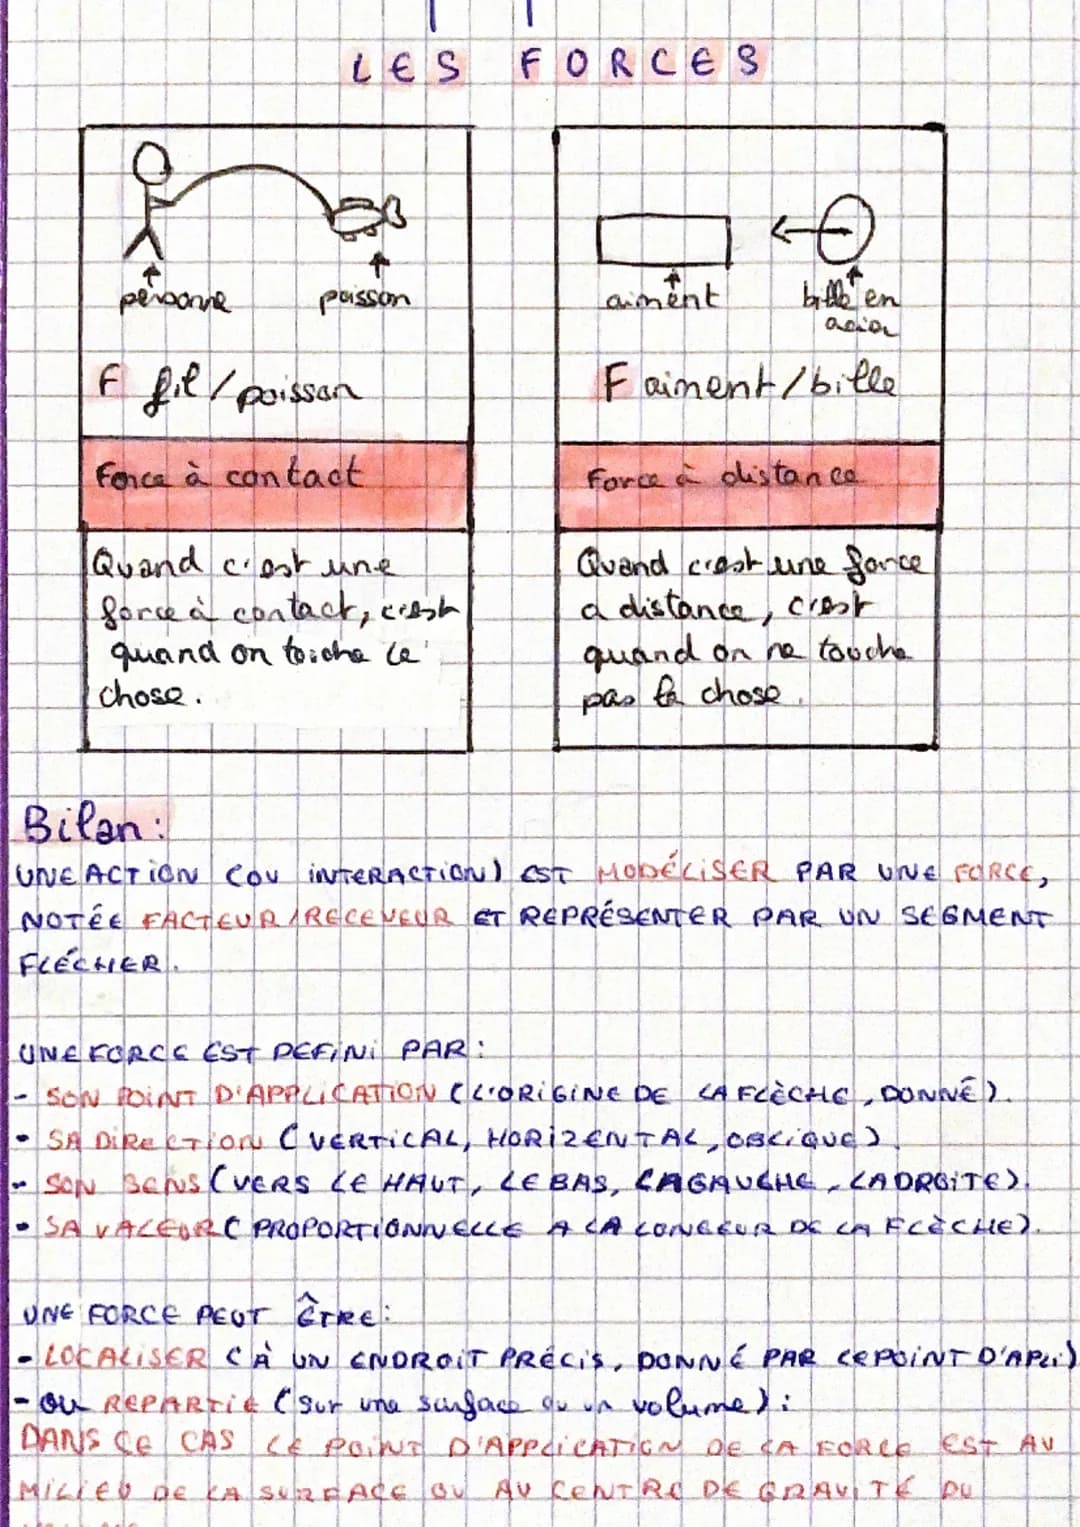 LES FORCES
personne
poisson
F fil/poisson
Force à contact
Quand c'est une
force à contact, c'est
quand on touche le
chose.
aiment
bille en
acier
F aiment/bille
Force à distance
Quand c'est une force
a distance, c'est
quand on ne touche
pas la chose.
Bilan:
UNE ACTION (OU INTERACTION) EST MODÉLISER PAR UNE FORCE,
NOTÉE FACTEUR/RECEVEUR ET REPRÉSENTER PAR UN SEGMENT
FLÉCHER.
UNE FORCE EST DEFINI PAR:
- SON POINT D'APPLICATION (L'ORIGINE DE LA FLÈCHE, DONNÉ).
- SA DIRECTION (VERTICAL, HORIZENTAL, OBLIQUE).
- SON SENS (VERS LE HAUT, LE BAS, LA GAUCHE, LA DROITE).
- SA VALEUR (PROPORTIONNELLE A LA LONGEUR DE LA FLÈCHE).
UNE FORCE PEUT ÊTRE:
- LOCALISER (À UN ENDROIT PRÉCIS, DONNÉ PAR LE POINT D'APLI)
- OU REPARTIE (sur une surface ou un volume):
DANS CE CAS LE POINT D'APPLICATION DE LA FORCE EST AU
MILIEU DE LA SURFACE OU AU CENTRE DE GRAVITÉ DU